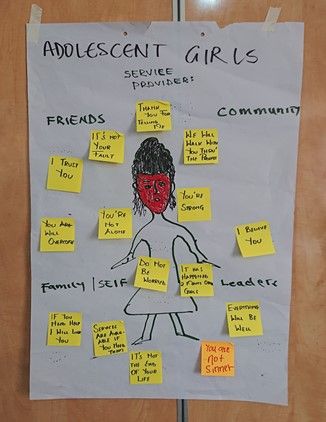 ADOLESCENT GIRLS
SERVICE
PROVIDER:
THANK
YOU FOR
TELLING
ME
FRIENDS
COMMUNITY
IT'S NOT
YOUR
FAULT
WE WILL
WALK WITH
YOU THRU'
THE
I TRUST
YOU
YOU'RE
STRONG
YOU'RE
NOT
ALONE
YOU ARE
WILL
OVERCOME
I BELIEVE
YOU
DO NOT
BE
WORRIED
IT HAS
HAPPENED
GIRLS
Family / SELF
Leaders
EVERYTHING
WILL BE
WELL
IF YOU
NEED HELP
I WILL
YOU
SERVICES
ARE AVAIL-
ABLE IF
YOU NEED
THEM
IT'S NOT
THE END
OF YOUR
LIFE
You are
not
sinner